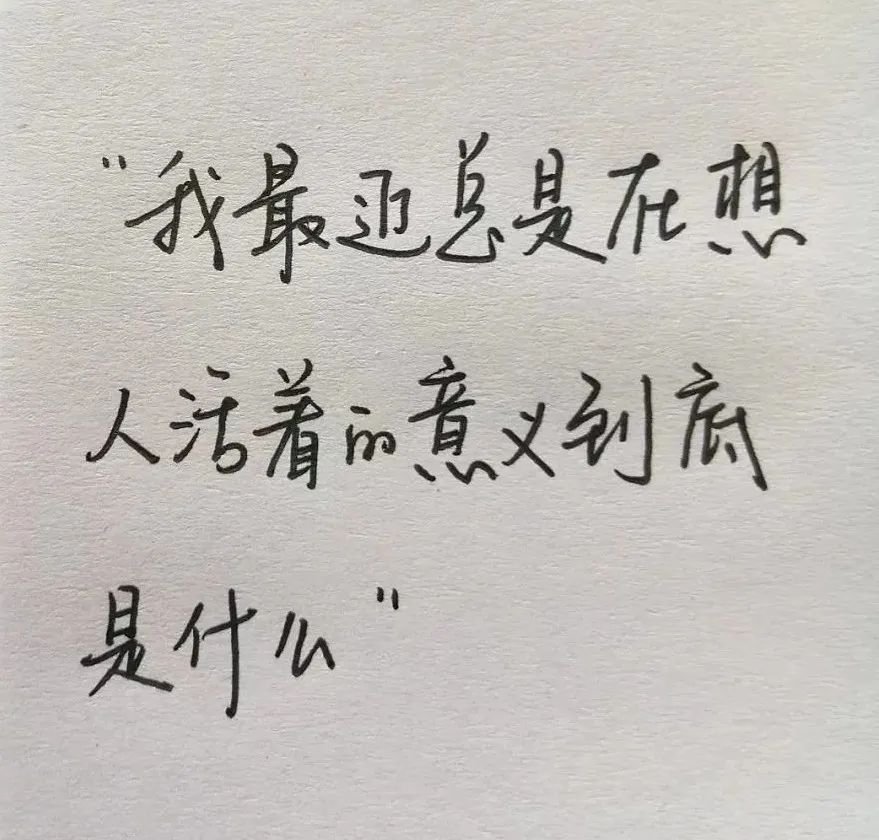 "我最近总是在想
人活着的意义到底
是什么"